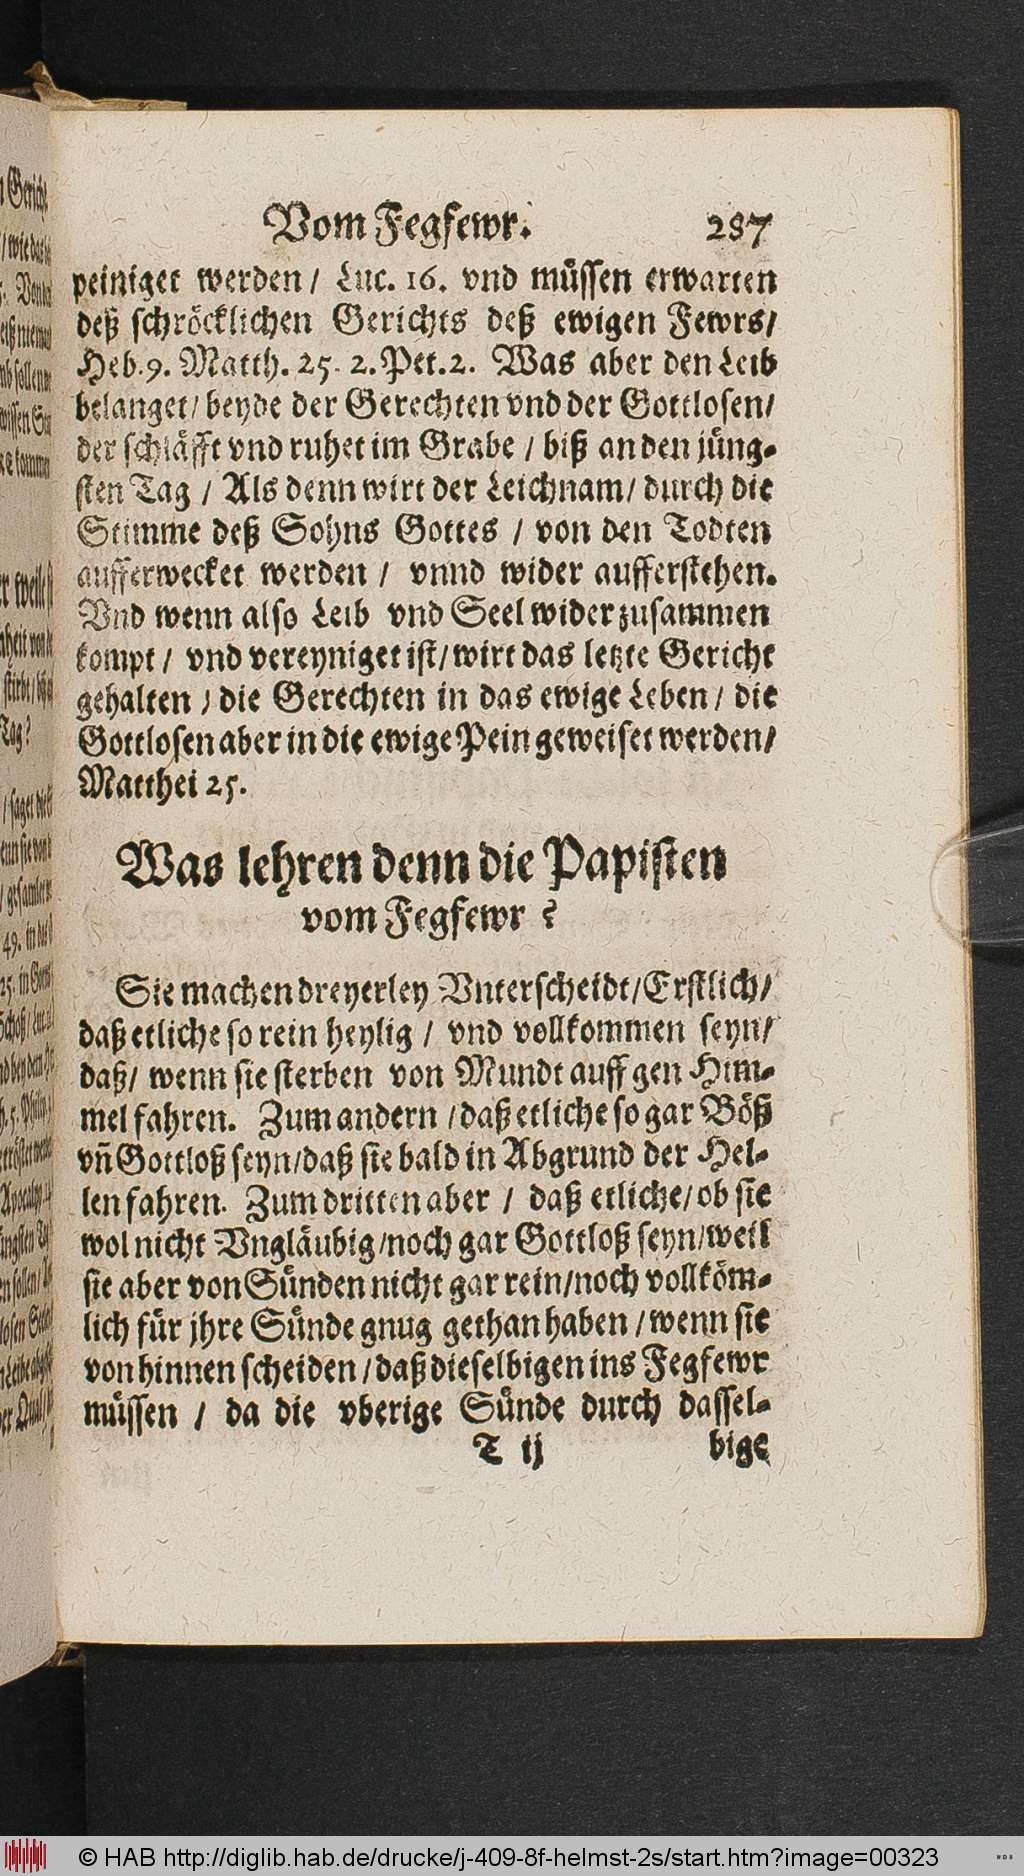 Vom Fegfewr. 287
peiniget werden / Luc. 16. vnd müssen erwarten
deß schröcklichen Gerichts deß ewigen Fewrs/
Heb. 9. Matth. 25. 2. Pet. 2. Was aber den Leib
belanget / beyde der Gerechten vnd der Gottlosen/
der schläfft vnd ruhet im Grabe / biß an den jüng-
sten Tag / Als denn wirt der Leichnam / durch die
Stimme deß Sohns Gottes / von den Todten
aufferwecket werden / vnnd wider aufferstehen.
Vnd wenn also Leib vnd Seel wider zusammen
kompt / vnd vereyniget ist / wirt das letzte Gericht
gehalten / die Gerechten in das ewige Leben / die
Gottlosen aber in die ewige Pein geweiset werden/
Matthei 25.
Was lehren denn die Papisten
vom Fegfewr?
Sie machen dreyerley Vnterscheidt / Erstlich/
daß etliche so rein heylig / vnd vollkommen seyn/
daß / wenn sie sterben von Mundt auff gen Him-
mel fahren. Zum andern / daß etliche so gar Böß
vñ Gottloß seyn / daß sie bald in Abgrund der Hel-
len fahren. Zum dritten aber / daß etliche / ob sie
wol nicht Vngläubig / noch gar Gottloß seyn / weil
sie aber von Sünden nicht gar rein / noch vollköm-
lich für jhre Sünde gnug gethan haben / wenn sie
von hinnen scheiden / daß dieselbigen ins Fegfewr
müssen / da die vberige Sünde durch dassel-
T ij bige
© HAB http://diglib.hab.de/drucke/j-409-8f-helmst-2s/start.htm?image=00323